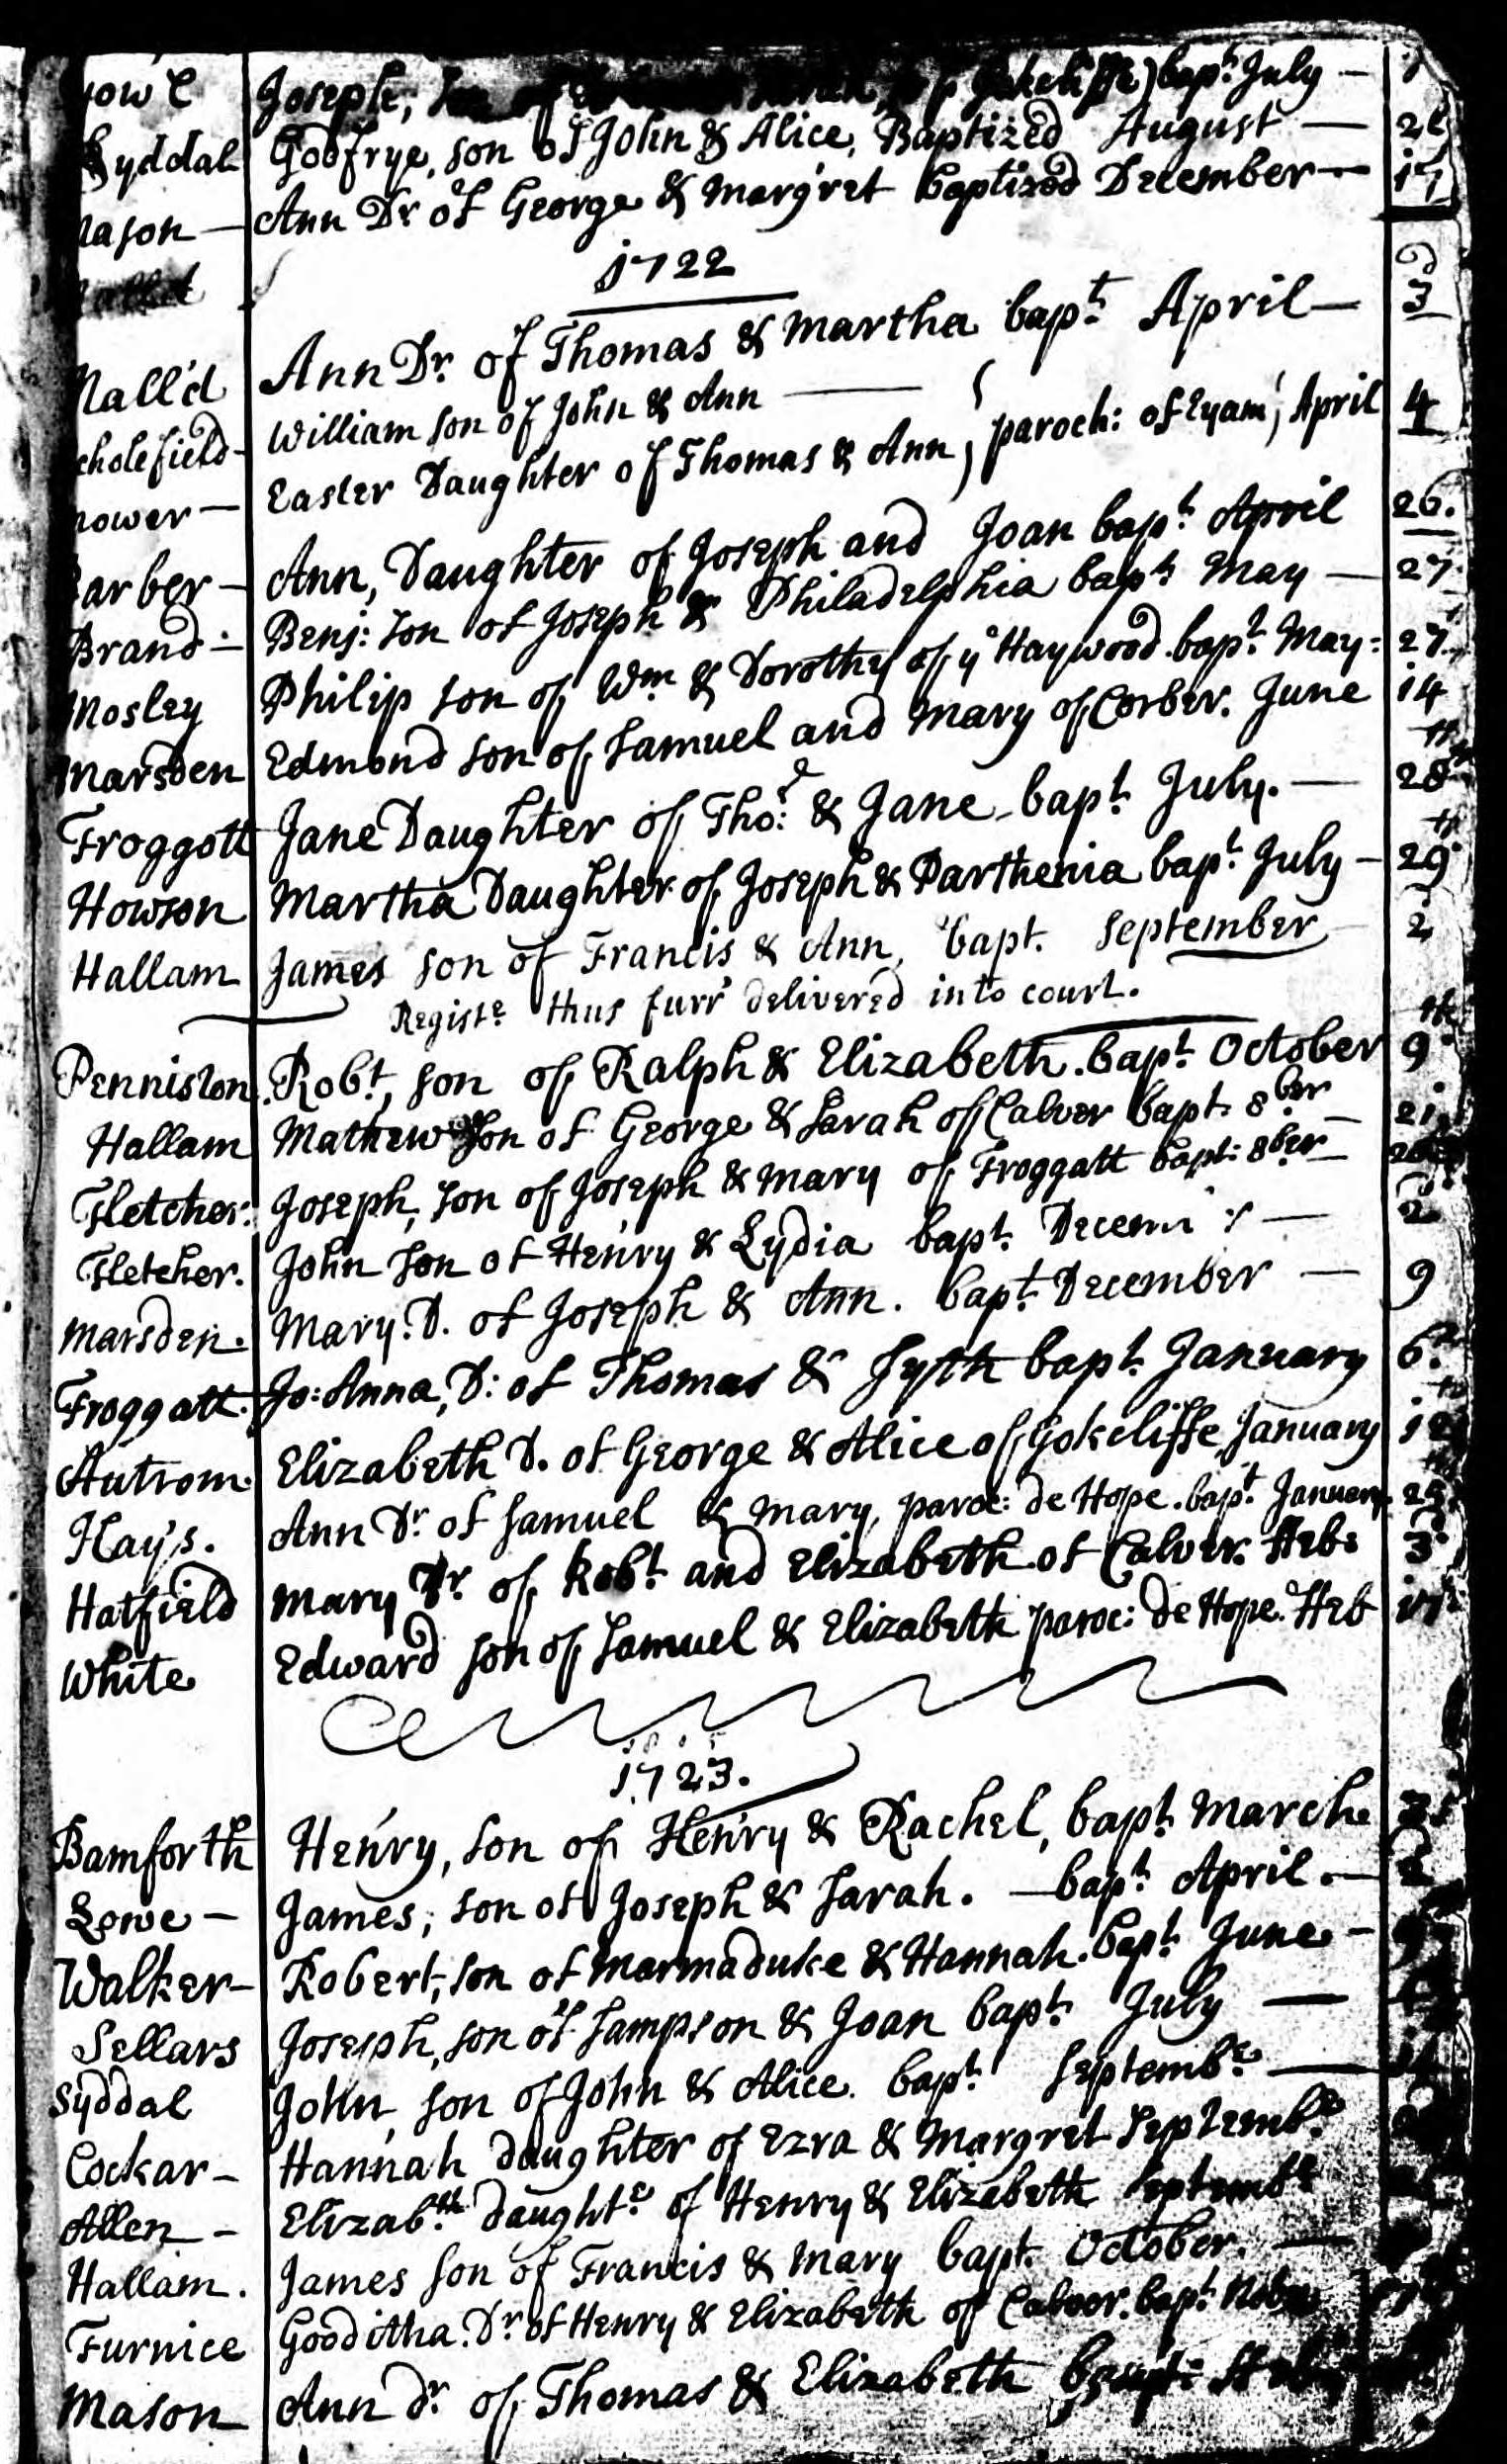 Joseph, bapt. July —
Syddal Godfrye, son of John & Alice, Baptized August —
Mason — Ann Dr of George & Margret baptized December — 17
1722
Nall'd Ann Dr. of Thomas & Martha bapt. April — 3
Scholefield — William son of John & Ann —
Mower — Easter Daughter of Thomas & Ann, } paroch: of Eyam, April 4
Barber — Ann, Daughter of Joseph and Joan bapt. April 26.
Brand — Benj: son of Joseph & Philadelphia bapt. May — 27
Mosley Philip son of Wm & Dorothy of ye Haywood. bapt. May: 27
Marsden Edmond son of Samuel and Mary of Corber. June 14
Froggott Jane Daughter of Tho: & Jane bapt. July. — 28th
Howson Martha Daughter of Joseph & Parthenia bapt. July — 29th
Hallam James son of Francis & Ann, bapt. September 2
Registe thus furr delivered into court.
Penniston. Robt, son of Ralph & Elizabeth. bapt. October 9th
Hallam Mathew Son of George & Sarah of Calver bapt. 8ber — 21
Fletcher. Joseph, son of Joseph & Mary of Froggatt bapt: 8ber —
Fletcher. John Son of Henry & Lydia bapt. — 2
Marsden. Mary. D. of Joseph & Ann. bapt. December — 9
Froggatt. Jo: Anna, D: of Thomas & Syth bapt. January 6.
Autrom. Elizabeth D. of George & Alice of Gokcliffe January
Hay's. Ann Dr. of Samuel & Mary, paroc: de Hope. bapt. January
Hatfield Mary Dr. of Robt. and Elizabeth of Calver. Feb: 3
White Edward son of Samuel & Elizabeth paroc: de Hope. Feb
1723.
Bamforth Henry, son of Henry & Rachel, bapt. March
Lowe — James, son of Joseph & Sarah. — bapt. April. —
Walker — Robert, son of Marmaduke & Hannah. bapt. June —
Sellars Joseph, son of Sampson & Joan bapt. July —
Syddal John, son of John & Alice. bapt. Septembe —
Cockar — Hannah daughter of Ezra & Margret Septembe
Allen — Elizabth daughte of Henry & Elizabeth Septembe
Hallam. James son of Francis & Mary bapt. October. —
Furnice Gooditha. Dr of Henry & Elizabeth of Calver. bapt.
Mason Ann dr of Thomas & Elizabeth